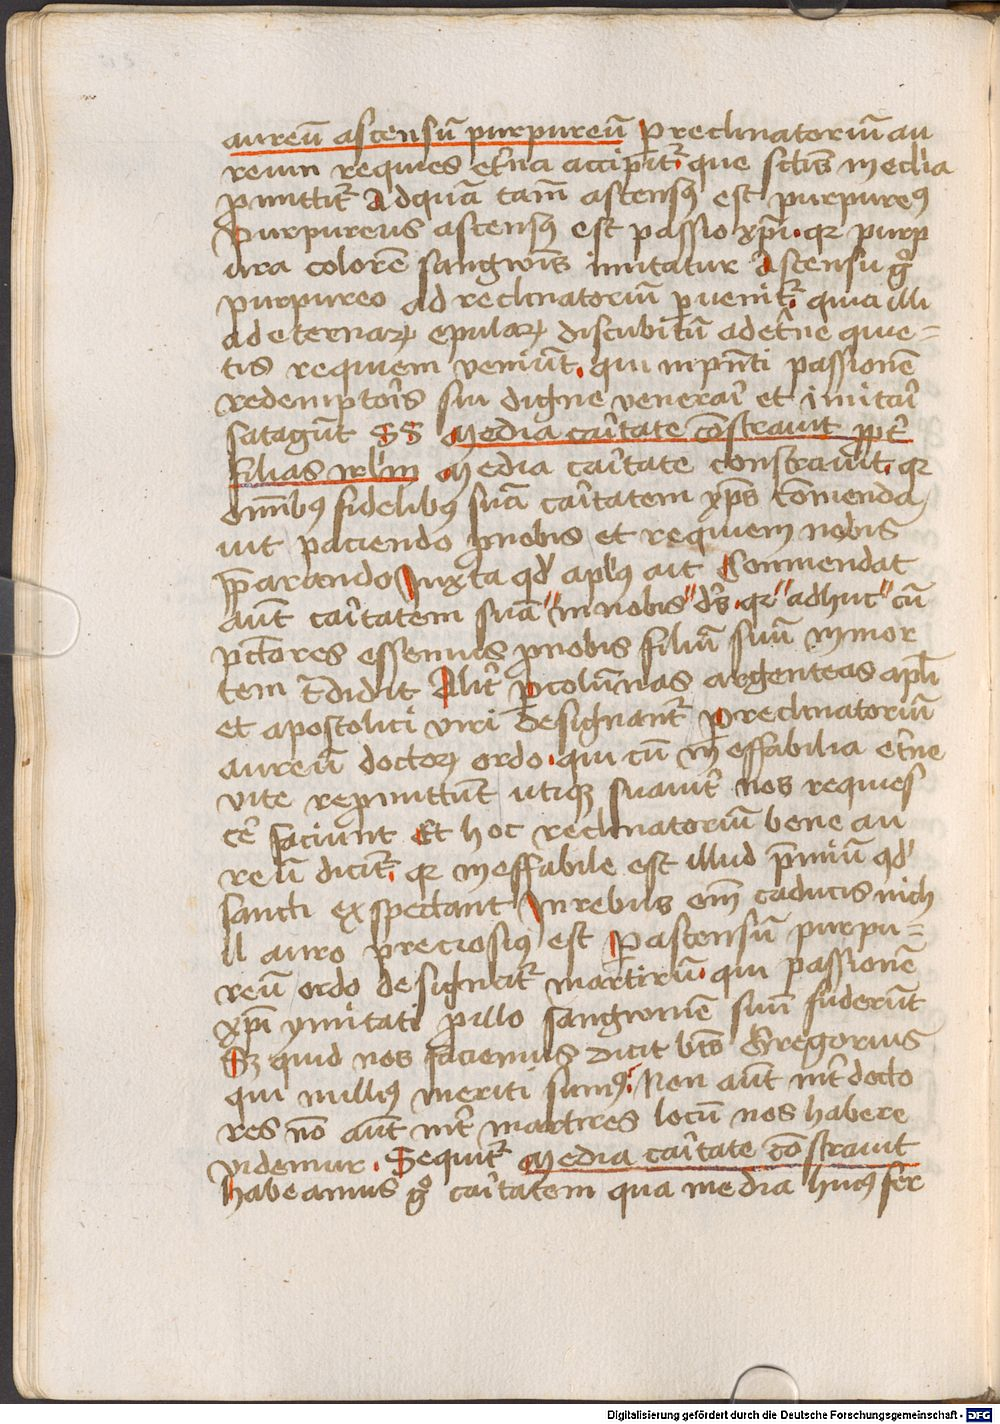 aureū ascensū purpureū P reclinatoriū au
reum requies et̄na accipit᷑. que sctīs media
ꝓmittit᷑ Adquā tam̄ ascensꝰ est purpureꝰ
Purpureus ascensꝰ est passio xp̄i. qꝛ purp
ura colorē sangwīs imitatur Ascensu gͦ
purpureo ad reclinatoriū ꝑuenit᷑. quia illi
ad eternaꝝ epulaꝝ discubitū ad et̄ne quie=
tis requiem veniūt. qui in pn̄ti passionē
redemptoīs sui digne venerai᷑ et imitai᷑
satagūt SS Media cāitate cōstrauit ꝓpt̄
filias irlʼm Media cāitate constrauit. qꝛ
om̄ibꝰ fidelibꝰ suā cāitatem xp̄s cōmenda
uit paciendo ꝓ nobis et requiem nobis
p̄parando Iuxta qd̓ apl̓us ait Commendat
aūt cāitatem suā in nobis ds̄. qꝛ adhuc cū
pctōres essemus ꝓ nobis filiū suū in mor
tem t᷑didit Alit̓ P colūnas argenteas apl̄i
et apostolici viri designant᷑ P reclinatoriū
aureū doctoꝝ ordo. qui cū ineffabilia et̄ne
vite repromittūt utiqꝫ suauit̓ nos requies
cē faciunt Et hoc reclinatoriū bene au
reū dicit᷑. qꝛ ineffabile est illud p̄miū qd̓
sancti exspectant In rebus em̄ caducis nich
il auro preciosiꝰ est P ascensū purpu=
reū ordo designat᷑ martirū. qui passionē
xp̄i ymitati ꝓ illo sangwinē suū fuderūt
Sꝫ quid nos faciemus dicit bt̄s Gregorius
qui nulliꝰ meriti sumꝰ. Non aūt int̓ docto
res nō aūt int̓ martires locū nos habere
videmur. Sequit᷑ Media cāitate cōstrauit
Habeamus gͦ cāitatem qua media huiꝰ fer